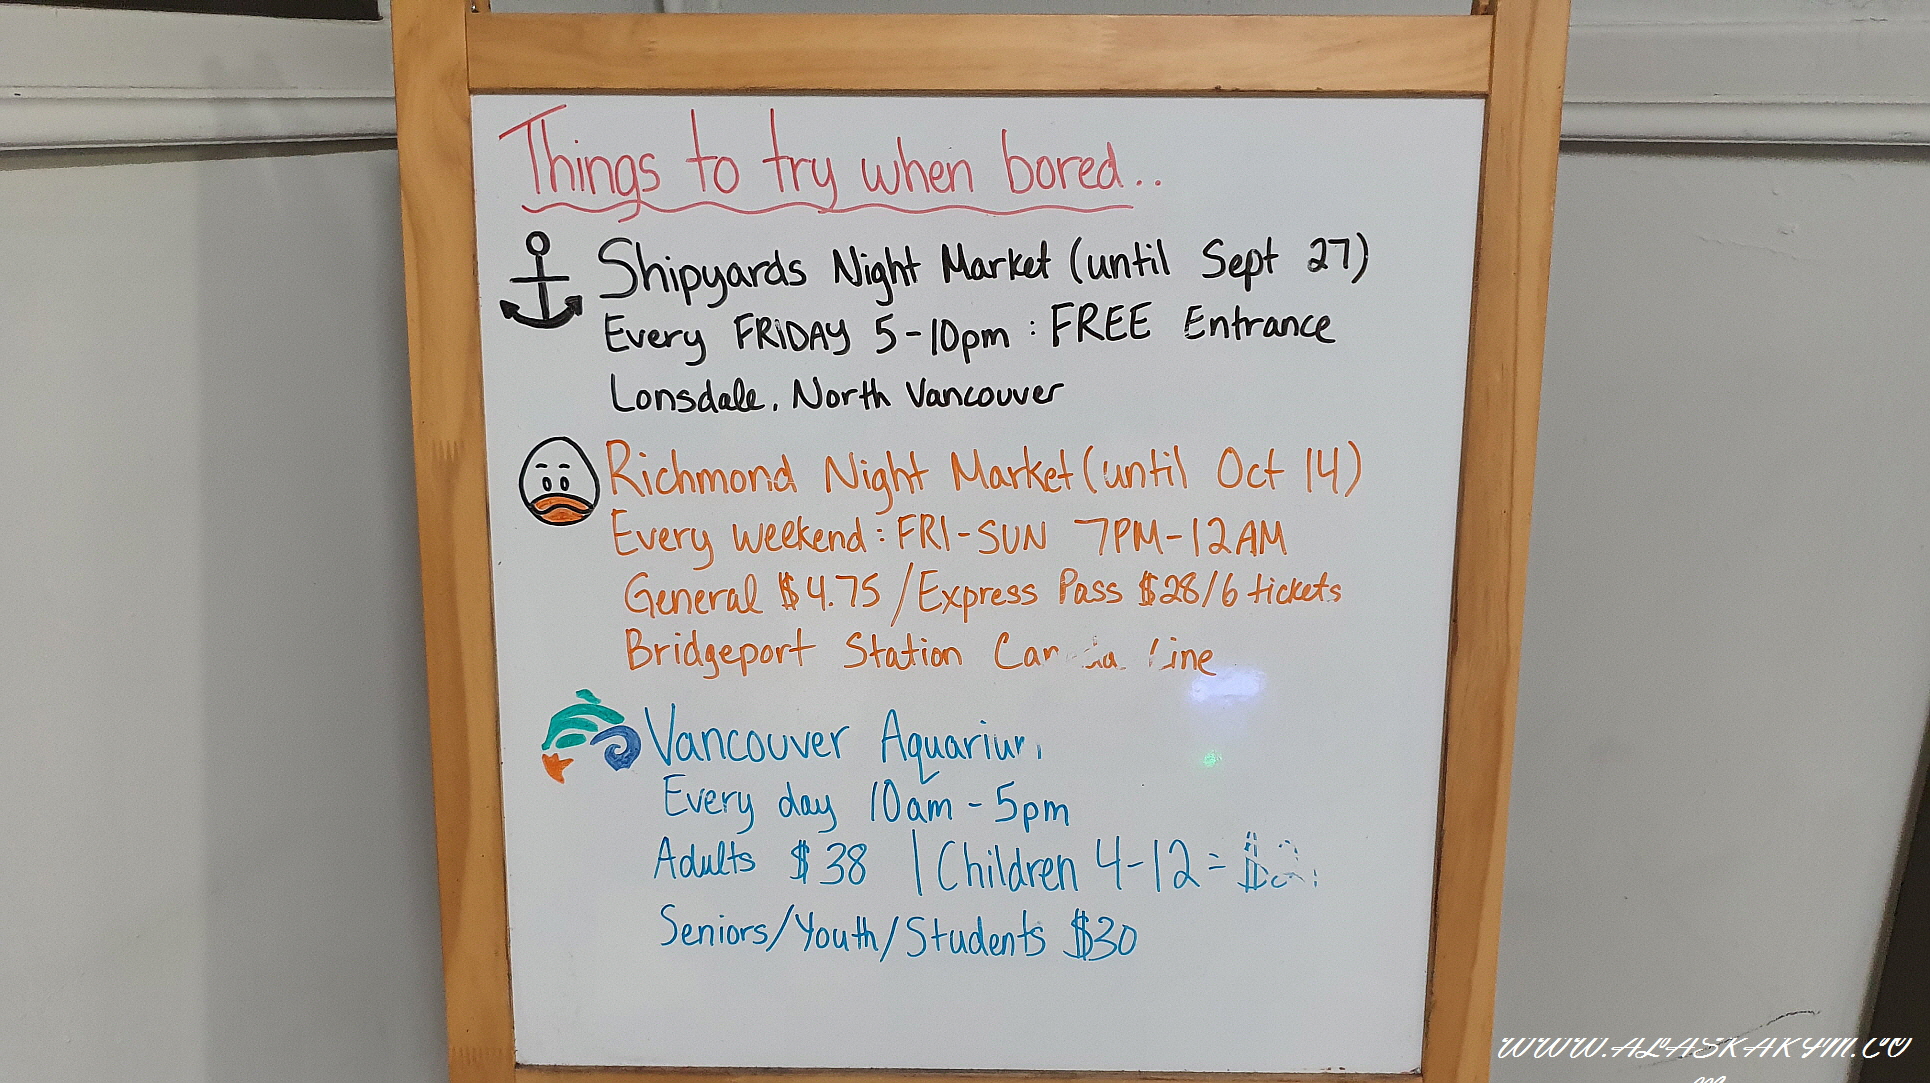 Things to try when bored..
Shipyards Night Market (until Sept 27)
Every FRIDAY 5-10pm : FREE Entrance
Lonsdale, North Vancouver
Richmond Night Market (until Oct 14)
Every weekend : FRI-SUN 7PM-12AM
General $4.75 / Express Pass $28/6 tickets
Bridgeport Station Canada Line
Vancouver Aquarium
Every day 10am - 5pm
Adults $38 | Children 4-12 =
Seniors/Youth/Students $30
WWW.ALASKAKYM.CO